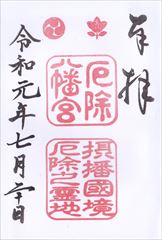 奉拝
厄除
八幡宮
摂播國境
厄除之霊地
令和元年七月二十日